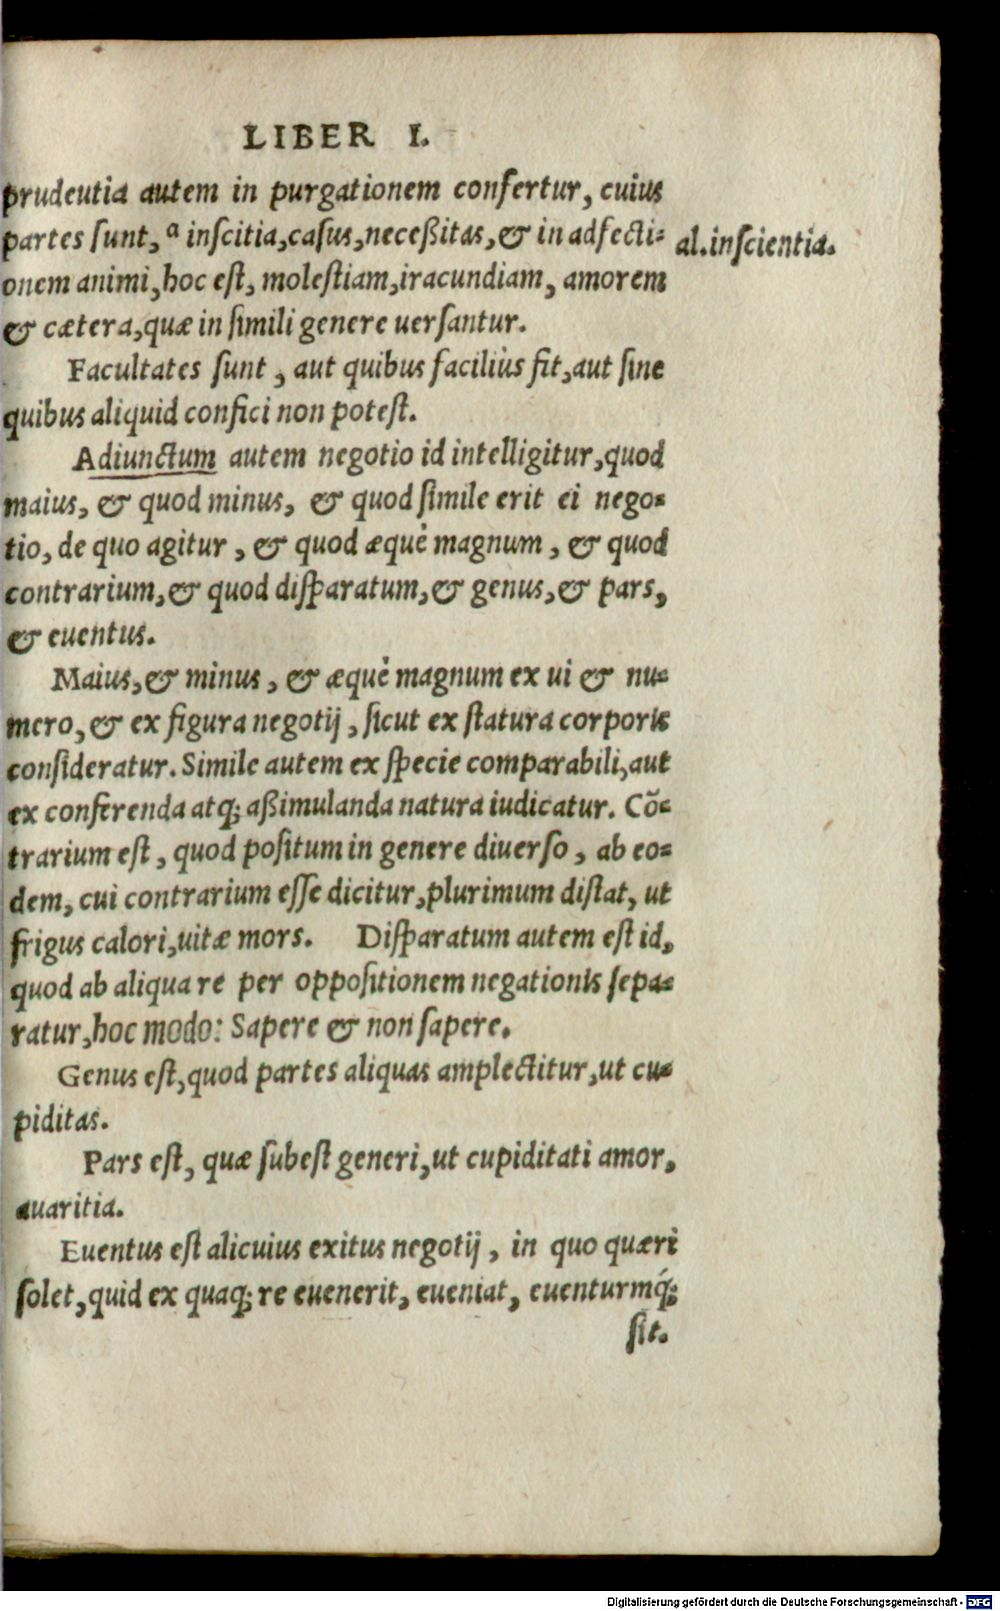 LIBER I.
prudeutia autem in purgationem confertur, cuius
partes sunt, ª inscitia, casus, neceßitas, & in adfecti-
al. inscientia.
onem animi, hoc est, molestiam, iracundiam, amorem
& cætera, quæ in simili genere uersantur.
Facultates sunt, aut quibus faciliùs fit, aut sine
quibus aliquid confici non potest.
Adiunctum autem negotio id intelligitur, quod
maius, & quod minus, & quod simile erit ei nego-
tio, de quo agitur, & quod æquè magnum, & quod
contrarium, & quod disparatum, & genus, & pars,
& euentus.
Maius, & minus, & æquè magnum ex ui & nu-
mero, & ex figura negotij, sicut ex statura corporis
consideratur. Simile autem ex specie comparabili, aut
ex conferenda atq; aßimulanda natura iudicatur. Cō-
trarium est, quod positum in genere diuerso, ab eo-
dem, cui contrarium esse dicitur, plurimum distat, ut
frigus calori, uitæ mors. Disparatum autem est id,
quod ab aliqua re per oppositionem negationis sepa-
ratur, hoc modo: Sapere & non sapere.
Genus est, quod partes aliquas amplectitur, ut cu-
piditas.
Pars est, quæ subest generi, ut cupiditati amor,
auaritia.
Euentus est alicuius exitus negotij, in quo quæri
solet, quid ex quaq; re euenerit, eueniat, euenturmq́;
sit.
Digitalisierung gefördert durch die Deutsche Forschungsgemeinschaft - DFG